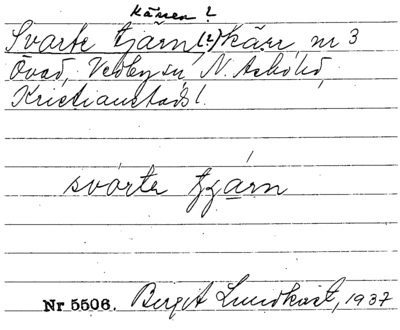 kärren?
Svarte tjärn(?)kärr, nr 3
Övad, Vedby sn, N. Åsbo hd,
Kristianstads l.
svarte tjärn
Nr 5506. Birgit Lundkvist, 1937